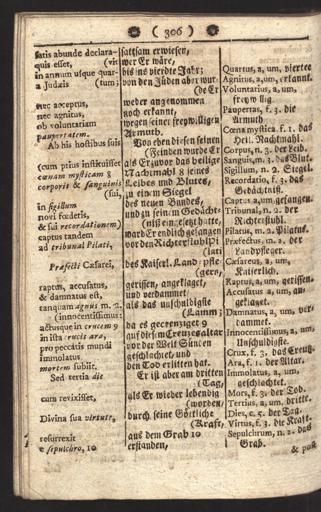 ( 306 )
satis abunde declara-
quis esset, (vit
in annum usque quar-
a Judæis (tum;
nec acceptus,
nec agnitus,
ob voluntariam
paupertatem.
Ab his hostibus suis
(cum prius instituisset
cœnam mysticam 8
corporis & sanguinis
(sui,
in sigillum
novi fœderis,
& sui recordationem)
captus tandem
ad tribunal Pilati,
Præfecti Cæsarei,
raptus, accusatus,
& damnatus est,
tanquam agnus m. 2.
(innocentissimus:
actusque in crucem 9
in ista crucis ara,
pro peccatis mundi
immolatus
mortem subiit.
Sed tertia die
cum revixisset,
Divina sua virtute,
resurrexit
e sepulchro, 10
sattsam erwiesen,
wer Er wäre,
bis ins vierdte Jahr;
von den Jüden aber wur-
(de Er
weder angenommen
noch erkannt,
wegen seiner freywilligen
Armuth.
Von eben diesen seinen
(Feinden wurde Er
als Er zuvor das heilige
Nachtmahl 8 seines
Leibes und Blutes,
zu einem Siegel
des neuen Bundes,
und zu seinem Gedächt-
(niß eingesetzt hatte,
ward Er endlich gefangen
vor den Richterstuhl Pi
(lati
des Kaiserl. Land-pfle-
(gers,
gerissen, angeklaget,
und verdammet
als das unschuldigste
(Lamm;
da es gecreutziget 9
auf diesem Creutzes altar
vor der Welt Sünden
geschlachtet, und
den Tod erlitten hat.
Er ist aber am dritten
(Tag,
als Er wieder lebendig
(worden,
durch seine Göttliche
(Kraft,
aus dem Grab 10
erstanden,
Quartus, a, um, vierter
Agnitus, a, um, erkannt.
Voluntarius, a, um,
freywillig.
Paupertas, f. 3. die
Armuth.
Cœna mystica, f. 1. das
Heil. Nachtmahl.
Corpus, n. 3. der Leib.
Sanguis, m. 3. das Blut.
Sigillum, n. 2. Siegel.
Recordatio, f. 3. das
Gedächtniß.
Captus, a, um, gefangen.
Tribunal, n. 2. der
Richterstuhl.
Pilatus, m. 2. Pilatus.
Præfectus, m. 2. der
Landpfleger.
Cæsareus, a, um,
Kaiserlich.
Raptus, a, um, gerissen.
Accusatus, a, um, an-
geklaget.
Damnatus, a, um, ver-
dammet.
Innocentissimus, a, um,
Unschuldigste.
Crux, f. 3. das Creutz.
Ara, f. 1. der Altar.
Immolatus, a, um,
geschlachtet.
Mors, f. 3. der Tod.
Tertius, a, um, dritte.
Dies, c. 5. der Tag.
Virtus, f. 3. die Kraft.
Sepulchrum, n. 2. das
Grab.
& post